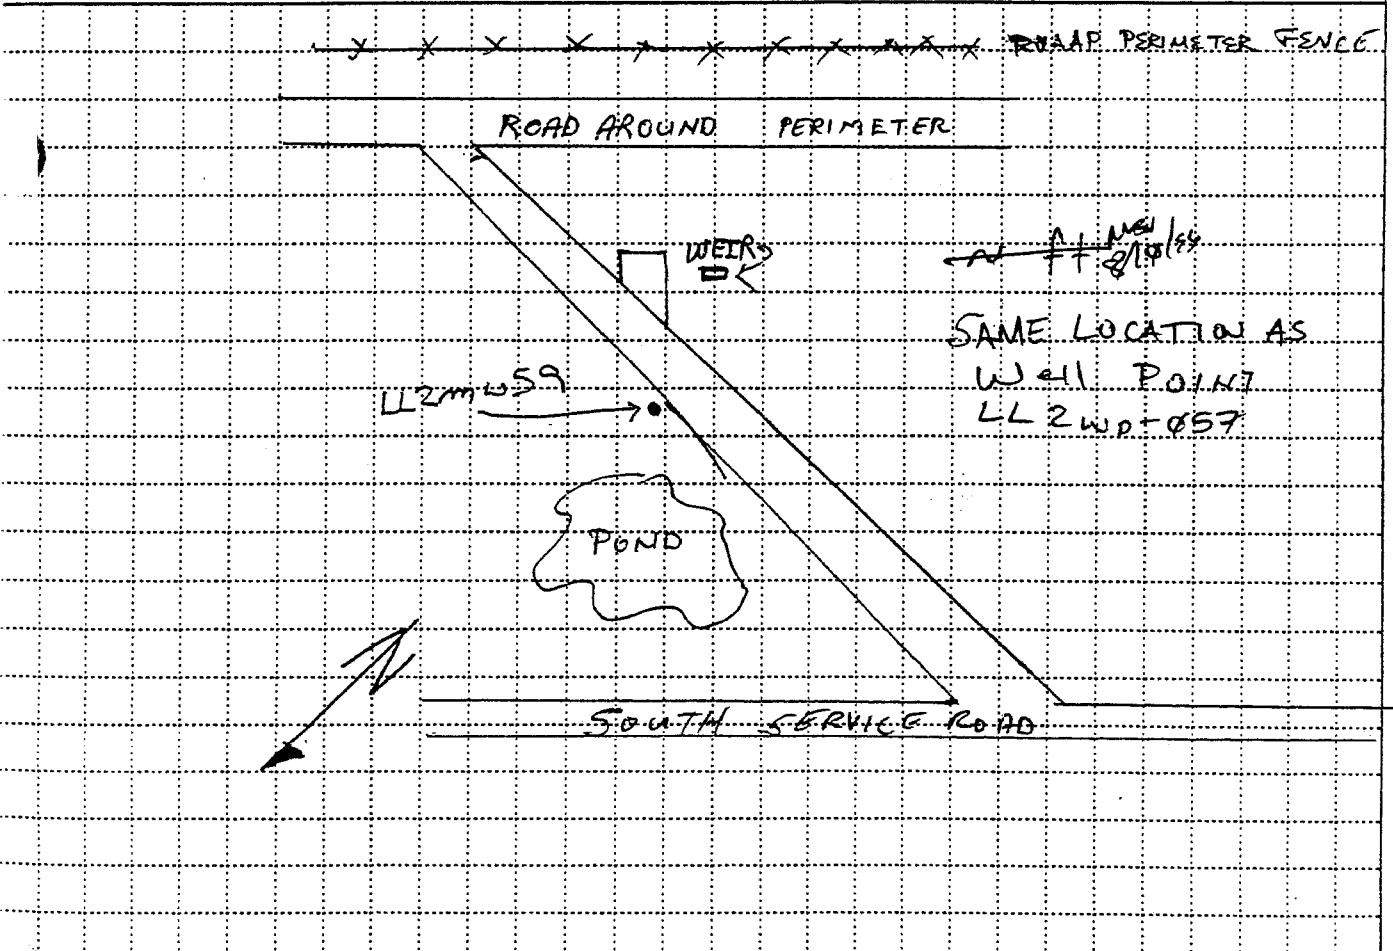 RVAAP PERIMETER FENCE
ROAD AROUND PERIMETER
WEIR
SAME LOCATION AS
Well POINT
LL2wp-Ø57
LL2mw59
POND
N
SOUTH SERVICE ROAD